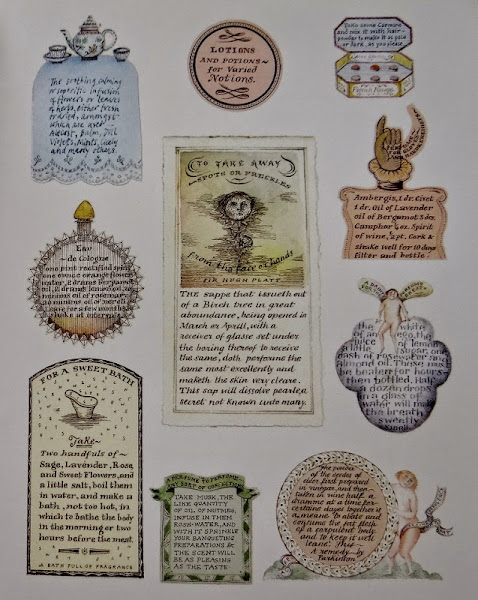 The soothing, calming
or soporific infusion
of flowers or leaves
of herbs, either fresh
or dried, amongst
which are used
Balm, Dill
Violets, Mints,
and many others.
LOTIONS
AND POTIONS~
for Varied
Notions.
Take some Carmine
and mix it with hair-
powder to make it as pale
or dark, as you please.
French Rouge
Ambergis, 1 dr. Civet
1 dr. Oil of Lavender
oil of Bergamot 3 drs.
Camphor ½ oz. Spirit
of wine, ½ pt. Cork &
shake well for 10 days
filter and bottle.
TO TAKE AWAY
SPOTS OR FRECKLES
from the face or hands
SIR HUGH PLATT
THE sappe that issueth out
of a Birch tree in great
aboundance, being opened in
March or Aprill, with a
receiver of glasse set under
the boring thereof to receive
the same, doth perfourm the
same most excellently and
maketh the skin very cleare.
This sap will dissolve pearle, a
secret not known unto many.
Eau
~ de Cologne
one pint rectified spirit
one ounce orange flower
water, 2 drams bergamot
oil, 2 drams lemon oil, 20
minims oil of rosemary
20 minims oil of neroli
Leave for a few months
shake at intervals
The white
of an
egg, the
juice of
a lemon
sugar, one
dash of rosewater and
almond oil. These must
be beaten for hours~
then bottled. Half
a dozen drops
in a glass
of water
will make
the breath
sweetly
smell.
FOR A SWEET BATH
Take~
Two handfuls of~
Sage, Lavender, Rose,
and Sweet Flowers, and
a little salt, boil them
in water, and make a
bath, not too hot, in
which to bathe the body
in the morning or two
hours before the meat.
A BATH FULL OF FRAGRANCE
A PERFUME TO PERFUME
ANY SORT OF CONFECTIONS
TAKE MUSK, THE
LIKE QUANTITY
OF OIL OF NUTMEG,
INFUSE IN THEM
ROSE-WATER, AND
WITH IT SPRINKLE
YOUR BANQUETING
PREPARATIONS &
THE SCENT WILL
BE AS PLEASING
AS THE TASTE.
The powder
of the seedes of
elder, first prepared
in vinegar, and then
taken in wine half a
dramme at a time for~
certaine dayes together is
a means to abate and
consume the fat flesh
of a corpulent body
and to keep it well
leane. This~
A remedy~by
Parkinson